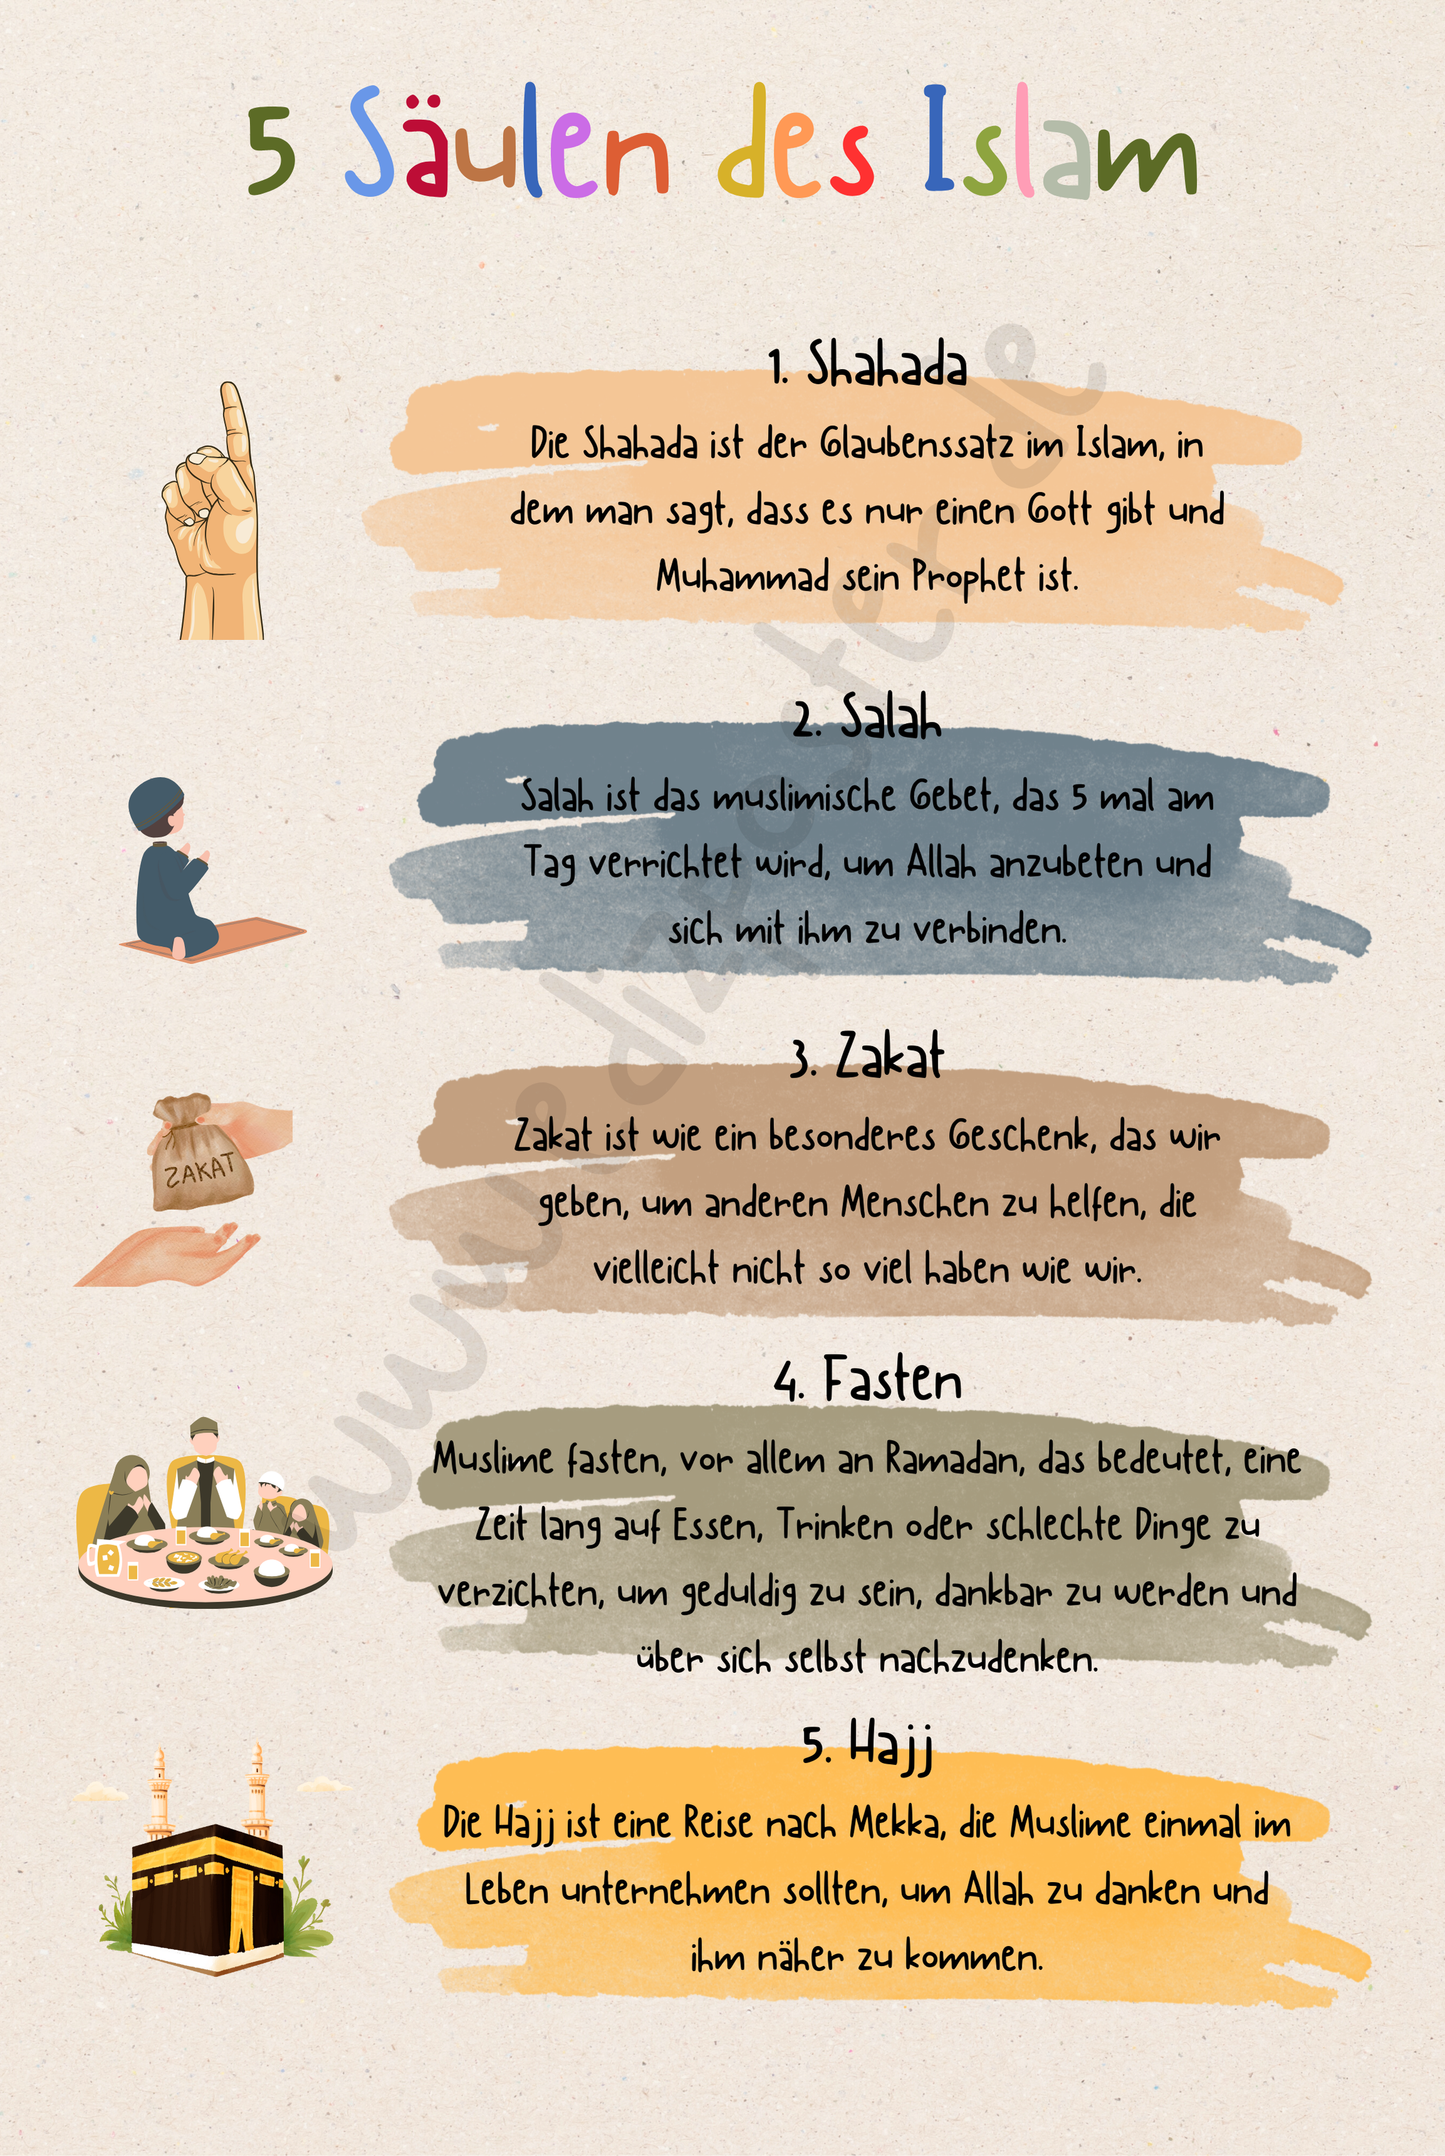 5 Säulen des Islam
1. Shahada
Die Shahada ist der Glaubenssatz im Islam, in
dem man sagt, dass es nur einen Gott gibt und
Muhammad sein Prophet ist.
2. Salah
Salah ist das muslimische Gebet, das 5 mal am
Tag verrichtet wird, um Allah anzubeten und
sich mit ihm zu verbinden.
3. Zakat
ZAKAT
Zakat ist wie ein besonderes Geschenk, das wir
geben, um anderen Menschen zu helfen, die
vielleicht nicht so viel haben wie wir.
4. Fasten
Muslime fasten, vor allem an Ramadan, das bedeutet, eine
Zeit lang auf Essen, Trinken oder schlechte Dinge zu
verzichten, um geduldig zu sein, dankbar zu werden und
über sich selbst nachzudenken.
5. Hajj
Die Hajj ist eine Reise nach Mekka, die Muslime einmal im
Leben unternehmen sollten, um Allah zu danken und
ihm näher zu kommen.